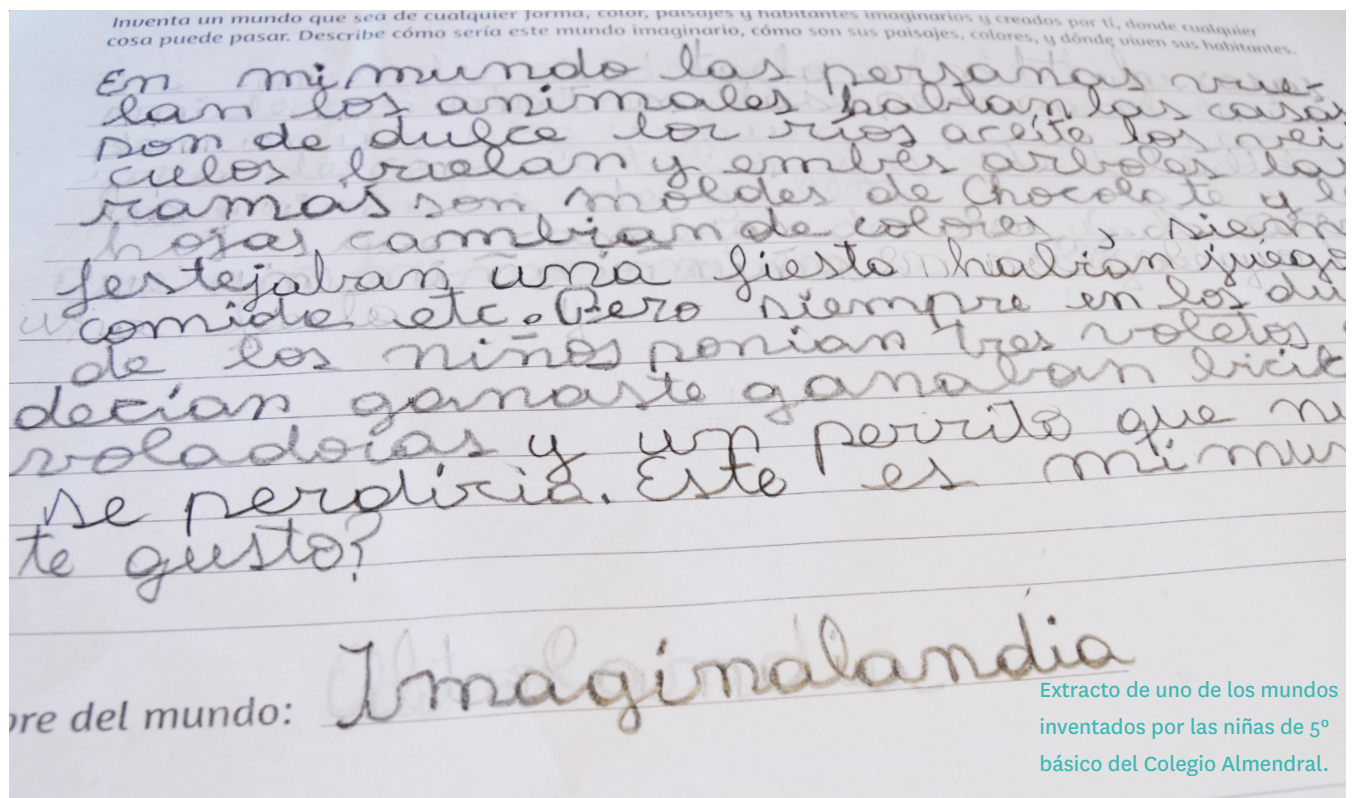 Inventa un mundo que sea de cualquier forma, color, paisajes y habitantes imaginarios y creados por tí, donde cualquier
cosa puede pasar. Describe cómo sería este mundo imaginario, cómo son sus paisajes, colores, y dónde viven sus habitantes.
En mi mundo las personas vue-
lan los animales hablan las casas
son de dulce los ríos aceite los veí
culos buelan y embés arboles la
ramas son moldes de chocolate y l
hojas cambian de colores, siem
festejaban una fiesta habían juego
comida etc. Pero siempre en los du
de los niños ponian tres voletos
decían ganaste ganaban bicik
voladoras y un perrito que nu
se perdiria. Este es mi mun
te gusto?
bre del mundo: Imaginalandia
Extracto de uno de los mundos
inventados por las niñas de 5°
básico del Colegio Almendral.